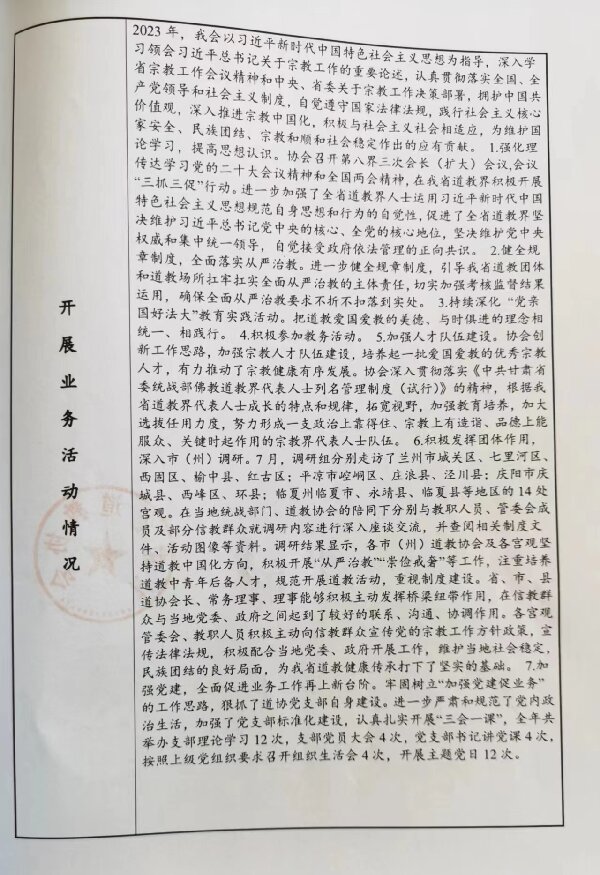 开展业务活动情况
2023 年，我会以习近平新时代中国特色社会主义思想为指导，深入学
习领会习近平总书记关于宗教工作的重要论述，认真贯彻落实全国、全
省宗教工作会议精神和中央、省委关于宗教工作决策部署，拥护中国共
产党领导和社会主义制度，自觉遵守国家法律法规，践行社会主义核心
价值观，深入推进宗教中国化，积极与社会主义社会相适应，为维护国
家安全、民族团结、宗教和顺和社会稳定作出的应有贡献。 1.强化理
论学习，提高思想认识。协会召开第八界三次会长（扩大）会议，会议
传达学习党的二十大会议精神和全国两会精神，在我省道教界积极开展
“三抓三促”行动。进一步加强了全省道教界人士运用习近平新时代中国
特色社会主义思想规范自身思想和行为的自觉性，促进了全省道教界坚
决维护习近平总书记党中央的核心、全党的核心地位，坚决维护党中央
权威和集中统一领导，自觉接受政府依法管理的正向共识。 2.健全规
章制度，全面落实从严治教。进一步健全规章制度，引导我省道教团体
和道教场所扛牢扛实全面从严治教的主体责任，切实加强考核监督结果
运用，确保全面从严治教要求不折不扣落到实处。 3.持续深化 “党亲
国好法大”教育实践活动。把道教爱国爱教的美德、与时俱进的理念相
统一、相践行。 4.积极参加教务活动。 5.加强人才队伍建设。协会创
新工作思路，加强宗教人才队伍建设，培养起一批爱国爱教的优秀宗教
人才，有力推动了宗教健康有序发展。协会深入贯彻落实《中共甘肃省
委统战部佛教道教界代表人士列名管理制度（试行）》的精神，根据我
省道教界代表人士成长的特点和规律，拓宽视野，加强教育培养，加大
选拔任用力度，努力形成一支政治上靠得住、宗教上有造诣、品德上能
服众、关键时起作用的宗教界代表人士队伍。 6.积极发挥团体作用，
深入市（州）调研。7 月，调研组分别走访了兰州市城关区、七里河区、
西固区、榆中县、红古区；平凉市崆峒区、庄浪县、泾川县；庆阳市庆
城县、西峰区、环县；临夏州临夏市、永靖县、临夏县等地区的 14 处
宫观。在当地统战部门、道教协会的陪同下分别与教职人员、管委会成
员及部分信教群众就调研内容进行深入座谈交流，并查阅相关制度文
件、活动图像等资料。调研结果显示，各市（州）道教协会及各宫观坚
持道教中国化方向，积极开展“从严治教”“崇俭戒奢”等工作，注重培养
道教中青年后备人才，规范开展道教活动，重视制度建设。省、市、县
道协会长、常务理事、理事能够积极主动发挥桥梁纽带作用，在信教群
众与当地党委、政府之间起到了较好的联系、沟通、协调作用。各宫观
管委会、教职人员积极主动向信教群众宣传党的宗教工作方针政策，宣
传法律法规，积极配合当地党委、政府开展工作，维护当地社会稳定，
民族团结的良好局面，为我省道教健康传承打下了坚实的基础。 7.加
强党建，全面促进业务工作再上新台阶。牢固树立“加强党建促业务”
的工作思路，狠抓了道协党支部自身建设。进一步严肃和规范了党内政
治生活，加强了党支部标准化建设，认真扎实开展“三会一课”，全年共
举办支部理论学习 12 次，支部党员大会 4 次，党支部书记讲党课 4 次，
按照上级党组织要求召开组织生活会 4 次，开展主题党日 12 次。